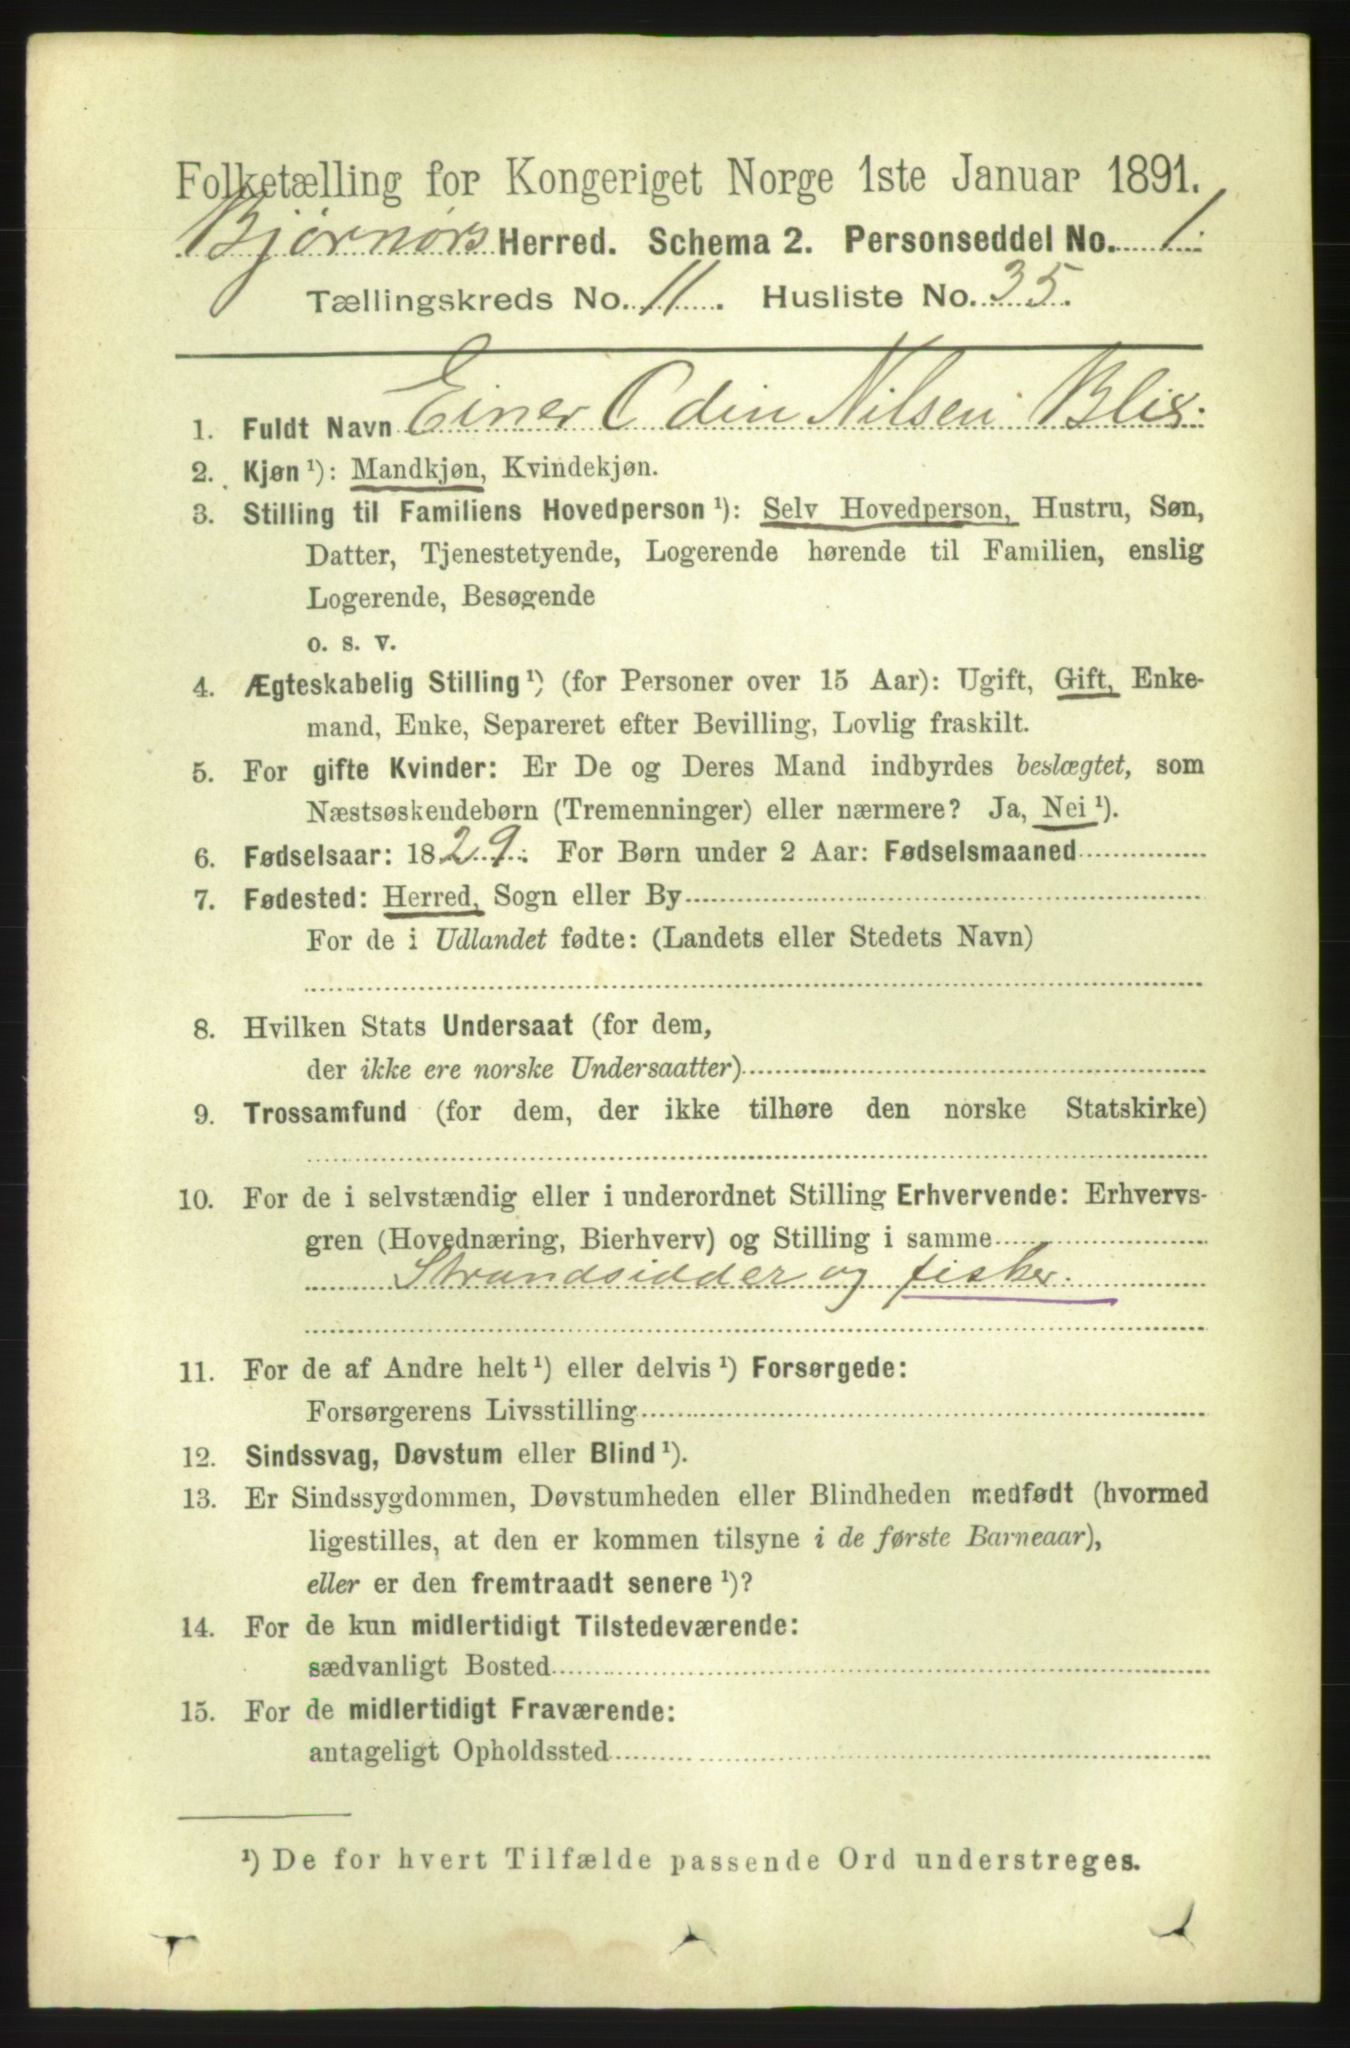 Folketælling for Kongeriget Norge 1ste Januar 1891.
Bjørnørs Herred. Schema 2. Personseddel No. 1.
Tællingskreds No. 11. Husliste No. 35.
1. Fuldt Navn Einer Odin Nilsen Blix.
2. Kjøn¹): Mandkjøn, Kvindekjøn.
3. Stilling til Familiens Hovedperson¹): Selv Hovedperson, Hustru, Søn,
Datter, Tjenestetyende, Logerende hørende til Familien, enslig
Logerende, Besøgende
o. s. v.
4. Ægteskabelig Stilling¹) (for Personer over 15 Aar): Ugift, Gift, Enke-
mand, Enke, Separeret efter Bevilling, Lovlig fraskilt.
5. For gifte Kvinder: Er De og Deres Mand indbyrdes beslægtet, som
Næstsøskendebørn (Tremenninger) eller nærmere? Ja, Nei¹).
6. Fødselsaar: 1829. For Børn under 2 Aar: Fødselsmaaned
7. Fødested: Herred, Sogn eller By
For de i Udlandet fødte: (Landets eller Stedets Navn)
8. Hvilken Stats Undersaat (for dem,
der ikke ere norske Undersaatter)
9. Trossamfund (for dem, der ikke tilhøre den norske Statskirke)
10. For de i selvstændig eller i underordnet Stilling Erhvervende: Erhvervs-
gren (Hovednæring, Bierhverv) og Stilling i samme
Strandsidder og fisker.
11. For de af Andre helt¹) eller delvis¹) Forsørgede:
Forsørgerens Livsstilling
12. Sindssvag, Døvstum eller Blind¹).
13. Er Sindssygdommen, Døvstumheden eller Blindheden medfødt (hvormed
ligestilles, at den er kommen tilsyne i de første Barneaar),
eller er den fremtraadt senere¹)?
14. For de kun midlertidigt Tilstedeværende:
sædvanligt Bosted
15. For de midlertidigt Fraværende:
antageligt Opholdssted
¹) De for hvert Tilfælde passende Ord understreges.